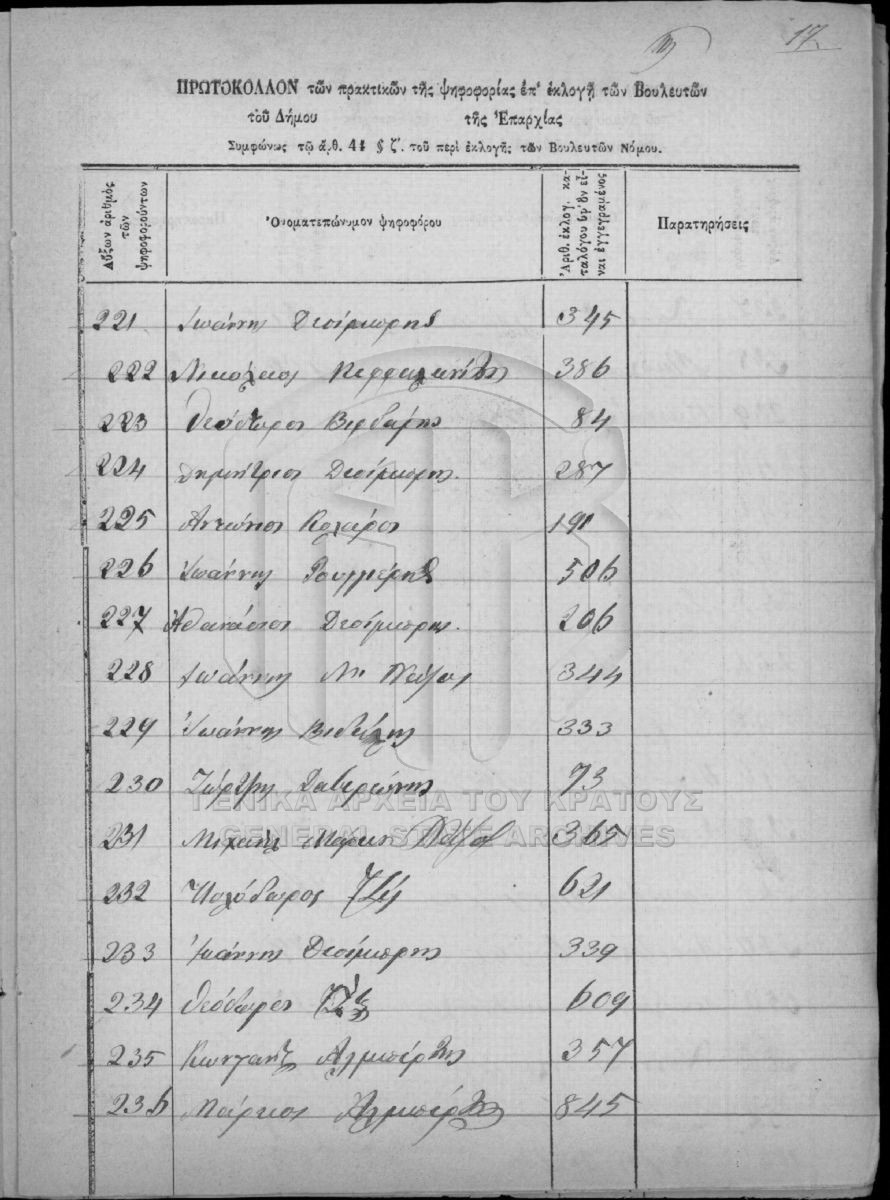 17
ΠΡΩΤΟΚΟΛΛΟΝ τῶν πρακτικῶν τῆς ψηφοφορίας ἐπ' ἐκλογῇ τῶν Βουλευτῶν
τοῦ Δήμου τῆς Ἐπαρχίας
Συμφώνως τῷ ἄρθ. 44 § ζ'. τοῦ περὶ ἐκλογῆς τῶν Βουλευτῶν Νόμου.
Αὔξων ἀριθμὸς τῶν ψηφοφορούντων
Ὀνοματεπώνυμον ψηφοφόρου
Ἀριθ. ἐκλογ. καταλόγου ὑφ' ὃν εἶναι ἐγγεγραμένος
Παρατηρήσεις
221 Ἰωάννης Δεσίμπρης 345
222 Νικόλαος Κεφφαλωνίτης 386
223 Θεόδωρος Βιρδάρης 84
224 Δημήτριος Δεσίμπρης 287
225 Αντώνιος Κολάρος 191
226 Ἰωάννης 506
227 Αθανάσιος Δεσίμπρης 206
228 Ἰωάννης 344
229 Ἰωάννης 333
230 Ζώρζης 73
231 Μιχαήλ 365
232 621
233 Ἰωάννης Δεσίμπρης 339
234 Θεόδωρος 609
235 Κωνσταντ Αλμπέρτης 357
236 Μάρκος Αλμπέρτης 845
ΓΕΝΙΚΑ ΑΡΧΕΙΑ ΤΟΥ ΚΡΑΤΟΥΣ
GENERAL STATE ARCHIVES